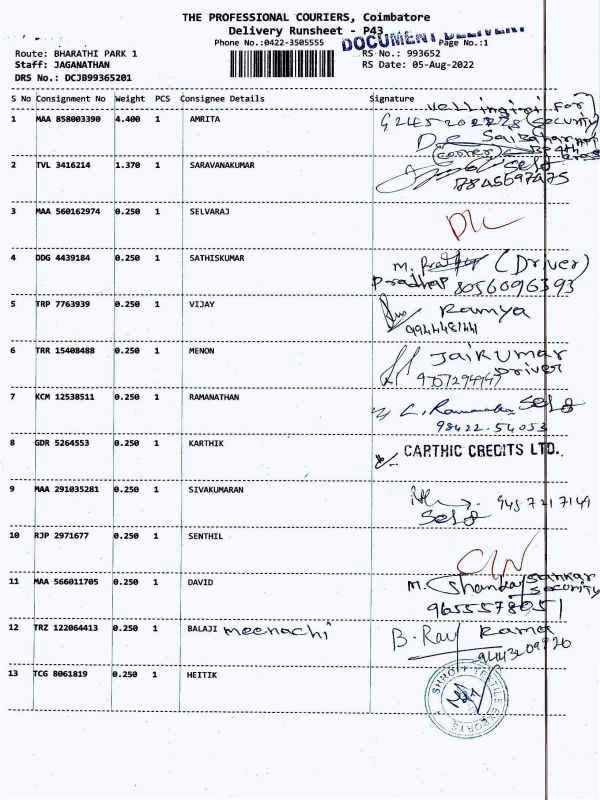 THE PROFESSIONAL COURIERS, Coimbatore
Delivery Runsheet - P43
Phone No.:0422-3505555
DOCUMENT DELIVERY
Page No.:1
Route: BHARATHI PARK 1
RS No.: 993652
Staff: JAGANATHAN
RS Date: 05-Aug-2022
DRS No.: DCJB99365201
S No Consignment No Weight PCS Consignee Details Signature
1 MAA 858003390 4.400 1 AMRITA
(Security
2 TVL 3416214 1.370 1 SARAVANAKUMAR
Self
7845697475
3 MAA 560162974 0.250 1 SELVARAJ
D/L
4 DDG 4439184 0.250 1 SATHISKUMAR
(Driver)
Pradhap 8056096393
5 TRP 7763939 0.250 1 VIJAY
Ramya
6 TRR 15408488 0.250 1 MENON
JAIKUMAR
Driver
7 KCM 12538511 0.250 1 RAMANATHAN
Self
98422-54053
8 GDR 5264553 0.250 1 KARTHIK
CARTHIC CREDITS LTD.,
9 MAA 291035281 0.250 1 SIVAKUMARAN
9457217149
Self
10 RJP 2971677 0.250 1 SENTHIL
11 MAA 566011705 0.250 1 DAVID
Sankar
Security
9655578051
12 TRZ 122064413 0.250 1 BALAJI meenachi
B. Ray Rama
13 TCG 8061819 0.250 1 HEITIK
SHROFF TEXTILE EXPORTS